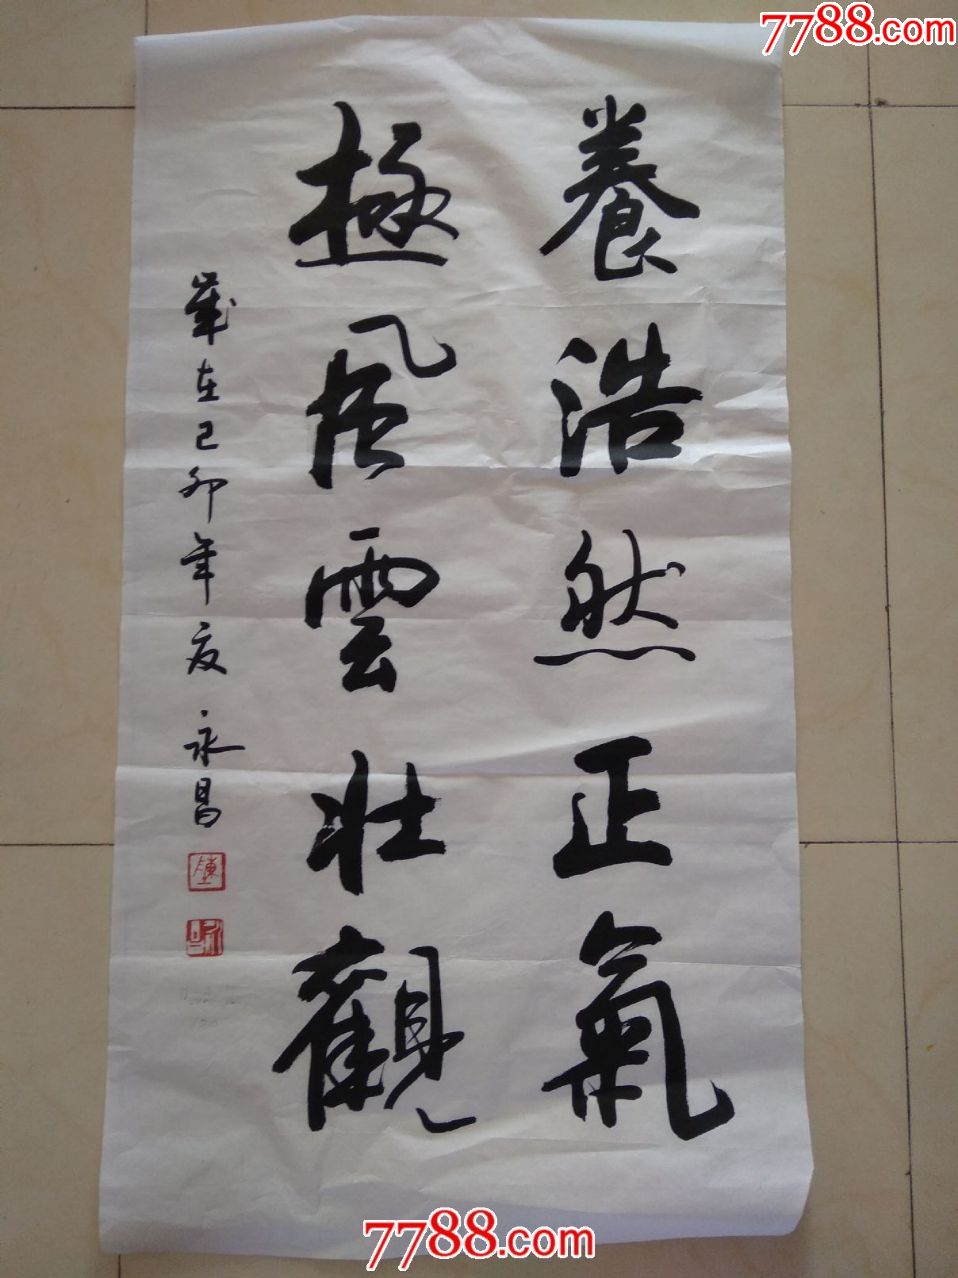 7788.com
養浩然正氣
極風雲壯觀
歲在己卯年夏 永昌
陳
永昌
7788.com